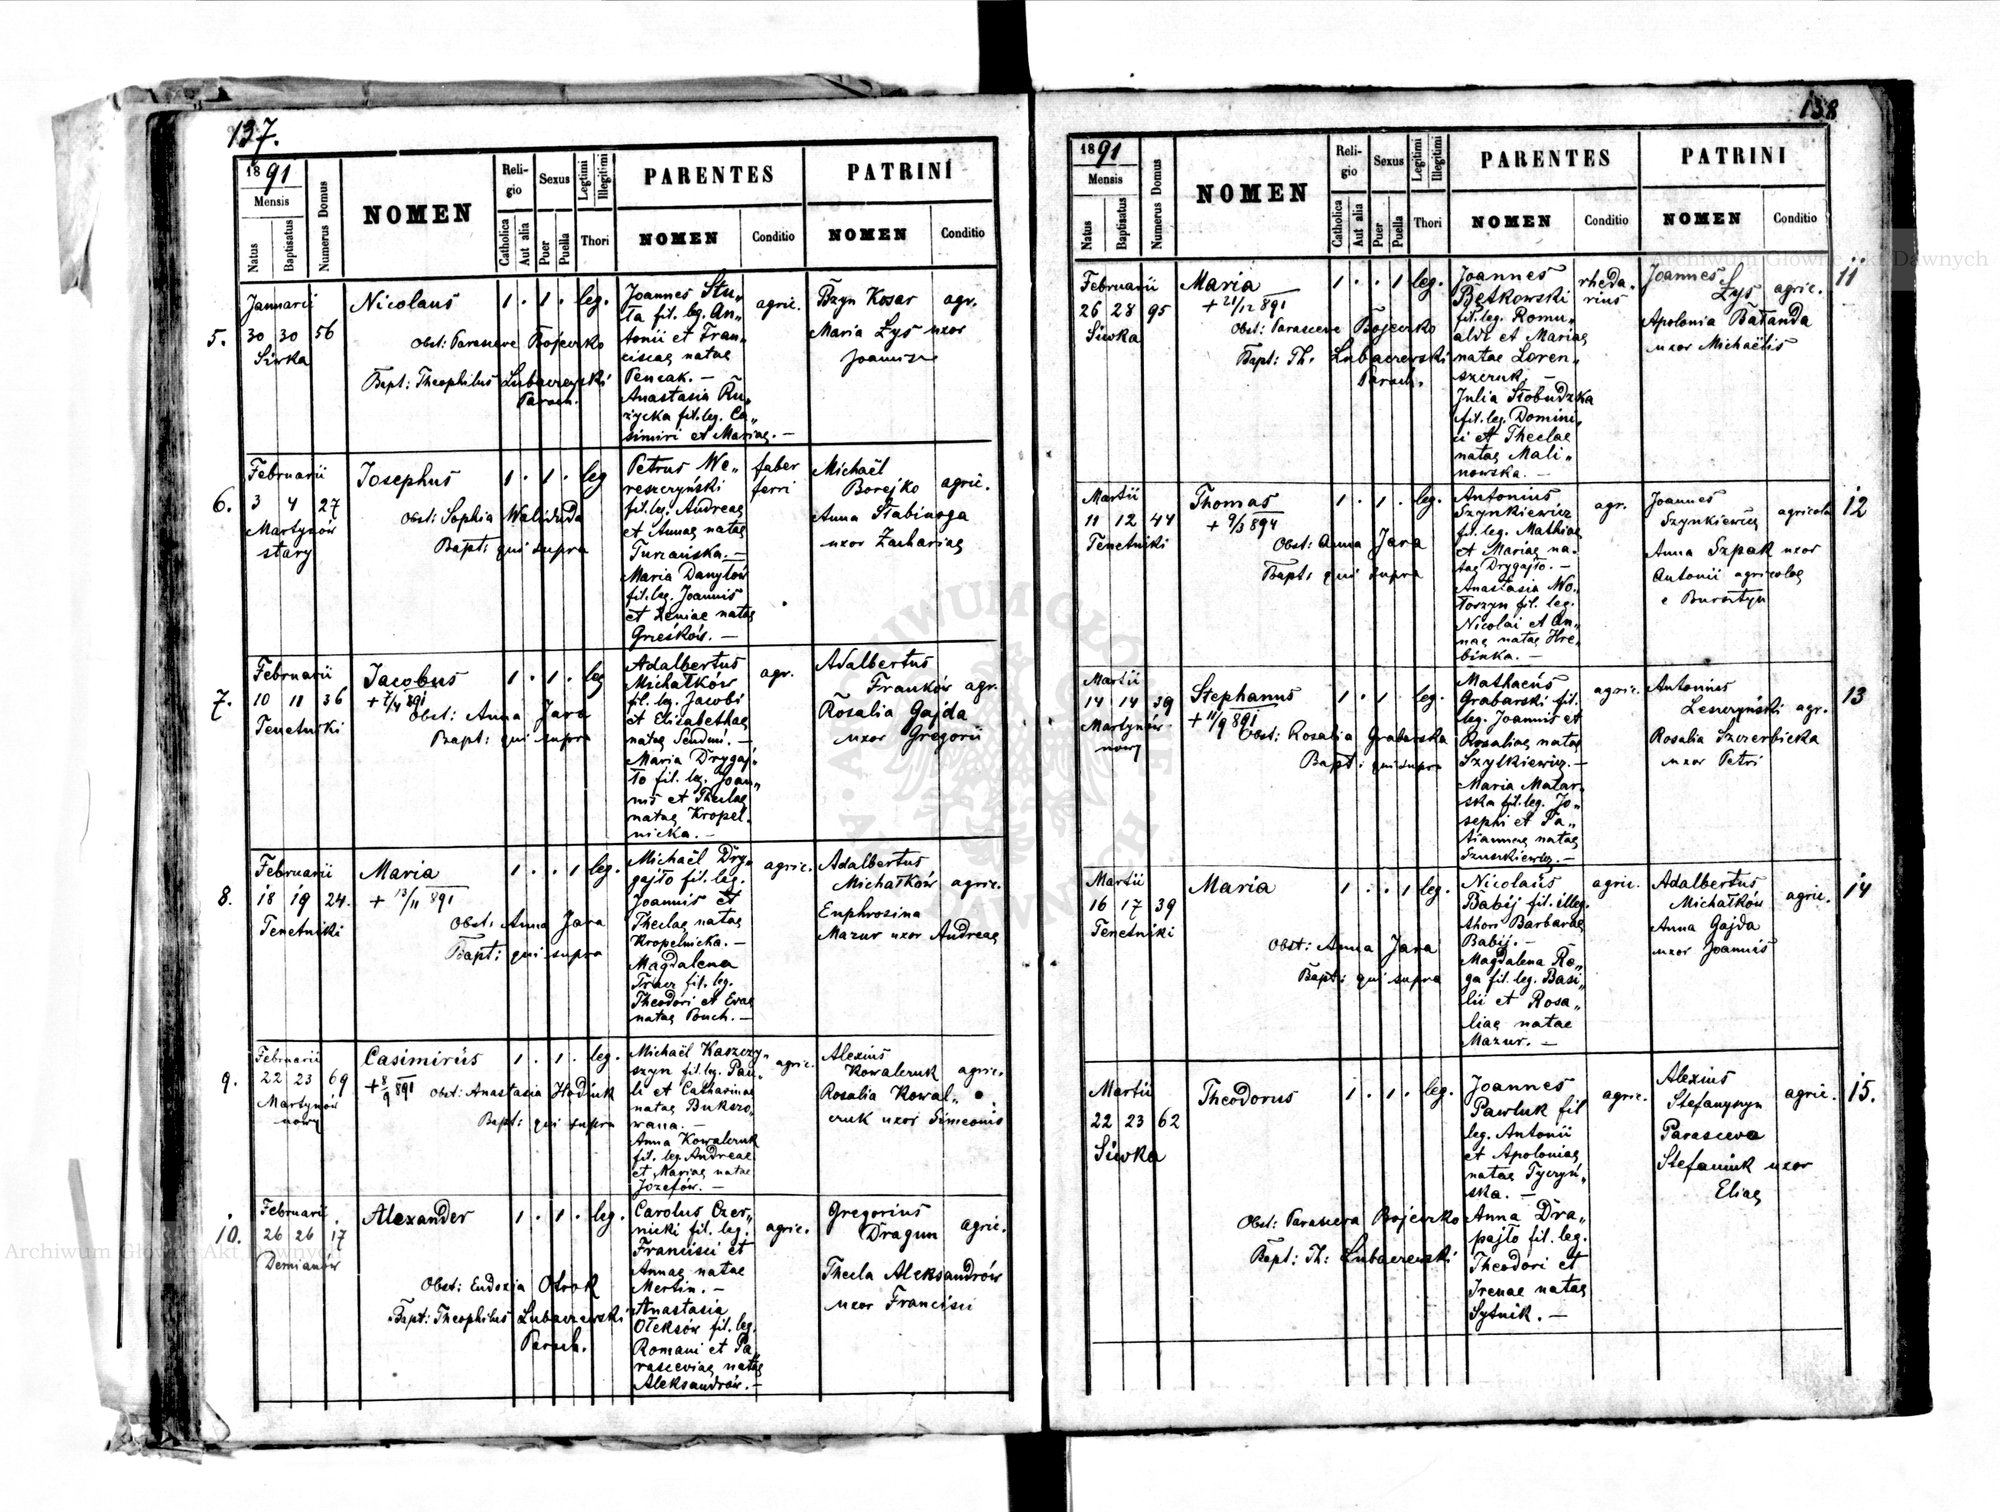 137.
1891
Mensis
Natus
Baptisatus
Numerus Domus
NOMEN
Religio
Catholica
Aut alia
Sexus
Puer
Puella
Legitimi
Illegitimi
Thori
PARENTES
NOMEN
Conditio
PATRINI
NOMEN
Conditio
5.
Januarii
30 30 56
Siwka
Nicolaus
1 . 1 . leg.
Obst: Parasceve Bojeczko
Bapt: Theophilus Lubaczewski
Paroch.
Joannes Stu„
ta fil. leg. An„
tonii et Fran„
ciscae natae
Pencak. —
Anastasia Ru„
życka fil. leg. Ca„
simiri et Mariae. —
agric.
Bzyn Kosar agr.
Maria Łyś uxor
Joannis
6.
Februarii
3 4 27
Martynów
stary
Josephus
1 . 1 . leg
Obst: Sophia Waliduda
Bapt: qui supra
Petrus We„
reszczyński
fil. leg. Andreae
et Annae natae
Turzańska. —
Maria Danyłów
fil. leg. Joannis
et Xeniae natae
Grześków. —
faber
ferri
Michaël
Borejko agric.
Anna Słabinoga
uxor Zachariae
7.
Februarii
10 11 36
Tenetniki
Jacobus
+ 7/4 891
1 . 1 . leg
Obst: Anna Jara
Bapt: qui supra
Adalbertus
Michałków
fil. leg. Jacobi
et Elisabethae
natae Sendui. —
Maria Drygaj„
ło fil. leg. Joan„
nis et Theclae
natae Kropel„
nicka. —
agr.
Adalbertus
Franków agr.
Rosalia Gajda
uxor Gregorii
8.
Februarii
18 19 24.
Tenetniki
Maria
+ 13/11 891
1 . . 1 leg.
Obst: Anna Jara
Bapt: qui supra
Michaël Dry„
gajło fil. leg.
Joannis et
Theclae natae
Kropelnicka. —
Magdalena
Tracz fil. leg.
Theodori et Evae
natae Pouch. —
agric.
Adalbertus
Michałków agric.
Euphrosina
Mazur uxor Andreae
9.
Februarii
22 23 69
Martynów
nowy
Casimirus
+ 8/9 891
1 . 1 . leg.
Obst: Anastasia Hodiuk
Bapt: qui supra
Michaël Kaszczy„
szyn fil. leg. Pau„
li et Catharinae
natae Bukszo„
wana. —
Anna Kowalczuk
fil. leg. Andreae
et Mariae natae
Józefów. —
agric.
Alexius
Kowalczuk agric.
Rosalia Kowal„
czuk uxor Simeonis
10.
Februarii
26 26 17
Demianów
Alexander
1 . 1 . leg.
Obst: Eudoxia Otrok
Bapt: Theophilus Lubaczewski
Paroch.
Carolus Czer„
nicki fil. leg.
Francisci et
Annae natae
Mertin. —
Anastasia
Ołeksów fil. leg.
Romani et Pa„
rasceviae natae
Aleksandrów. —
agric.
Gregorius
Dragun agric.
Thecla Aleksandrów
uxor Francisci
138
1891
Mensis
Natus
Baptisatus
Numerus Domus
NOMEN
Religio
Catholica
Aut alia
Sexus
Puer
Puella
Legitimi
Illegitimi
Thori
PARENTES
NOMEN
Conditio
PATRINI
NOMEN
Conditio
11
Februarii
26 28 95
Siwka
Maria
+ 21/12 891
1 . . 1 leg.
Obst: Parasceve Bojeczko
Bapt: Th. Lubaczewski
Paroch.
Joannes
Bętkowski
fil. leg. Romu„
aldi et Mariae
natae Loren„
szczuk. —
Julia Słobudzka
fil. leg. Domini„
ci et Theclae
natae Mali„
nowska. —
rheda„
rius
Joannes
Łyś agric.
Apolonia Bałanda
uxor Michaëlis
12
Martii
11 12 44
Tenetniki
Thomas
+ 9/3 894
1 . 1 . leg.
Obst: Anna Jara
Bapt: qui supra
Antonius
Szynkiewicz
fil. leg. Mathiae
et Mariae na„
tae Drygajło. —
Anastasia Wo„
łoszyn fil. leg.
Nicolai et An„
nae natae Hre„
binka. —
agr.
Joannes
Szynkiewicz agricola
Anna Szpak uxor
Antonii agricolae
e Bursztyn
13
Martii
14 14 39
Martynów
nowy
Stephanus
+ 11/9 891
1 . 1 . leg.
Obst: Rosalia Grabarska
Bapt: qui supra
Mathaeus
Grabarski fil.
leg. Joannis et
Rosaliae natae
Szylkiewicz. —
Maria Malar„
ska fil. leg. Jo„
sephi et Ta„
tiannae natae
Szuszkiewicz. —
agric.
Antonius
Leszczyński agr.
Rosalia Szczerbicka
uxor Petri
14
Martii
16 17 39
Tenetniki
Maria
1 . . 1 leg.
Obst: Anna Jara
Bapt: qui supra
Nicolaus
Babij fil. illeg.
thori Barbarae
Babij. —
Magdalena Ro„
ga fil. leg. Basi„
lii et Rosa„
liae natae
Mazur. —
agric.
Adalbertus
Michałków agric.
Anna Gajda
uxor Joannis
15.
Martii
22 23 62
Siwka
Theodorus
1 . 1 . leg.
Obst: Parasceva Bojeczko
Bapt: Th: Lubaczewski
Joannes
Pawluk fil
leg. Antonii
et Apoloniae
natae Tyczyń„
ska. —
Anna Dra„
pajło fil. leg.
Theodori et
Irenae natae
Sytnik. —
agric.
Alexius
Stefanyszyn agric.
Parasceva
Stefaniuk uxor
Eliae
Archiwum Główne Akt Dawnych
Archiwum Główne Akt Dawnych
ARCHIWUM GŁÓWNE AKT DAWNYCH